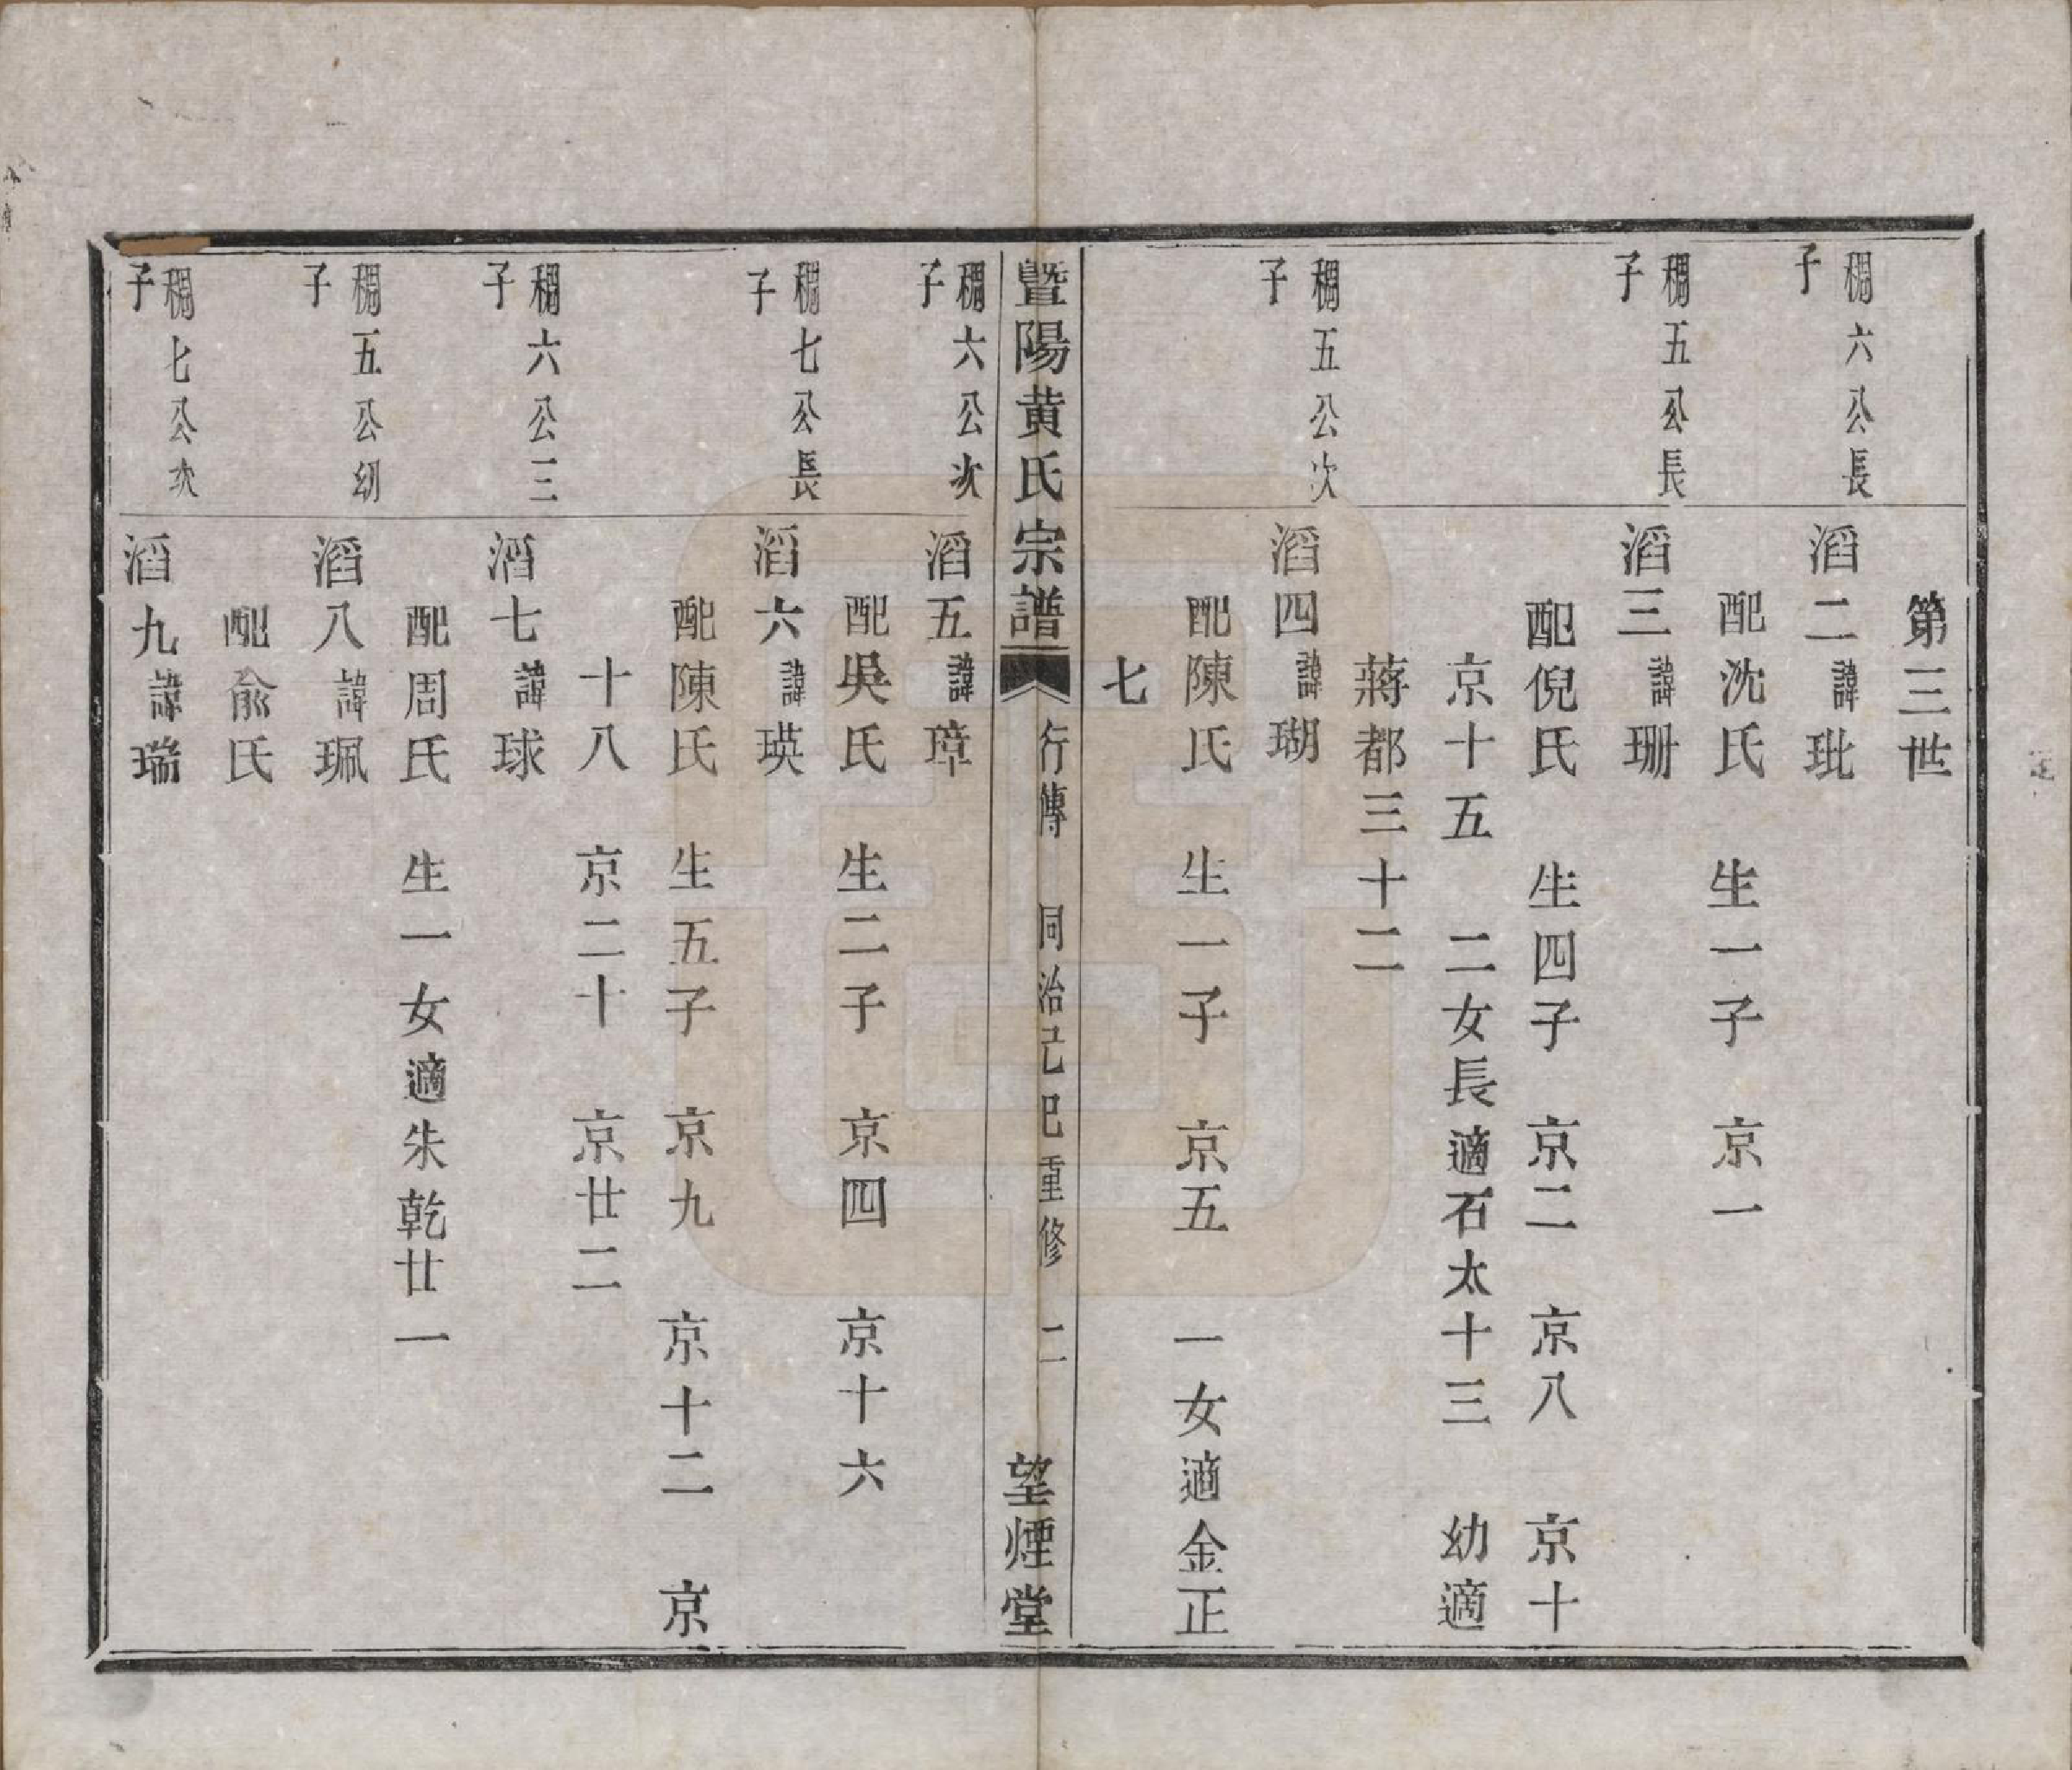 第三世
稠六公長
子
滔二諱玭
配沈氏　生一子　京一
稠五公長
子
滔三諱珊
配倪氏　生四子　京二　京八　京十
京十五　二女長適石太十三　幼適
蔣都三十二
稠五公次
子
滔四諱瑚
配陳氏　生一子　京五　一女適金正
七
暨陽黄氏宗譜　行傳　同治己巳重修　二　望煙堂
稠六公次
子
滔五諱璋
配吳氏　生二子　京四　京十六
稠七公長
子
滔六諱瑛
配陳氏　生五子　京九　京十二　京
十八　京二十　京廿二
稠六公三
子
滔七諱球
配周氏　生一女適朱乾廿一
稠五公幼
子
滔八諱珮
配俞氏
稠七公次
子
滔九諱瑞